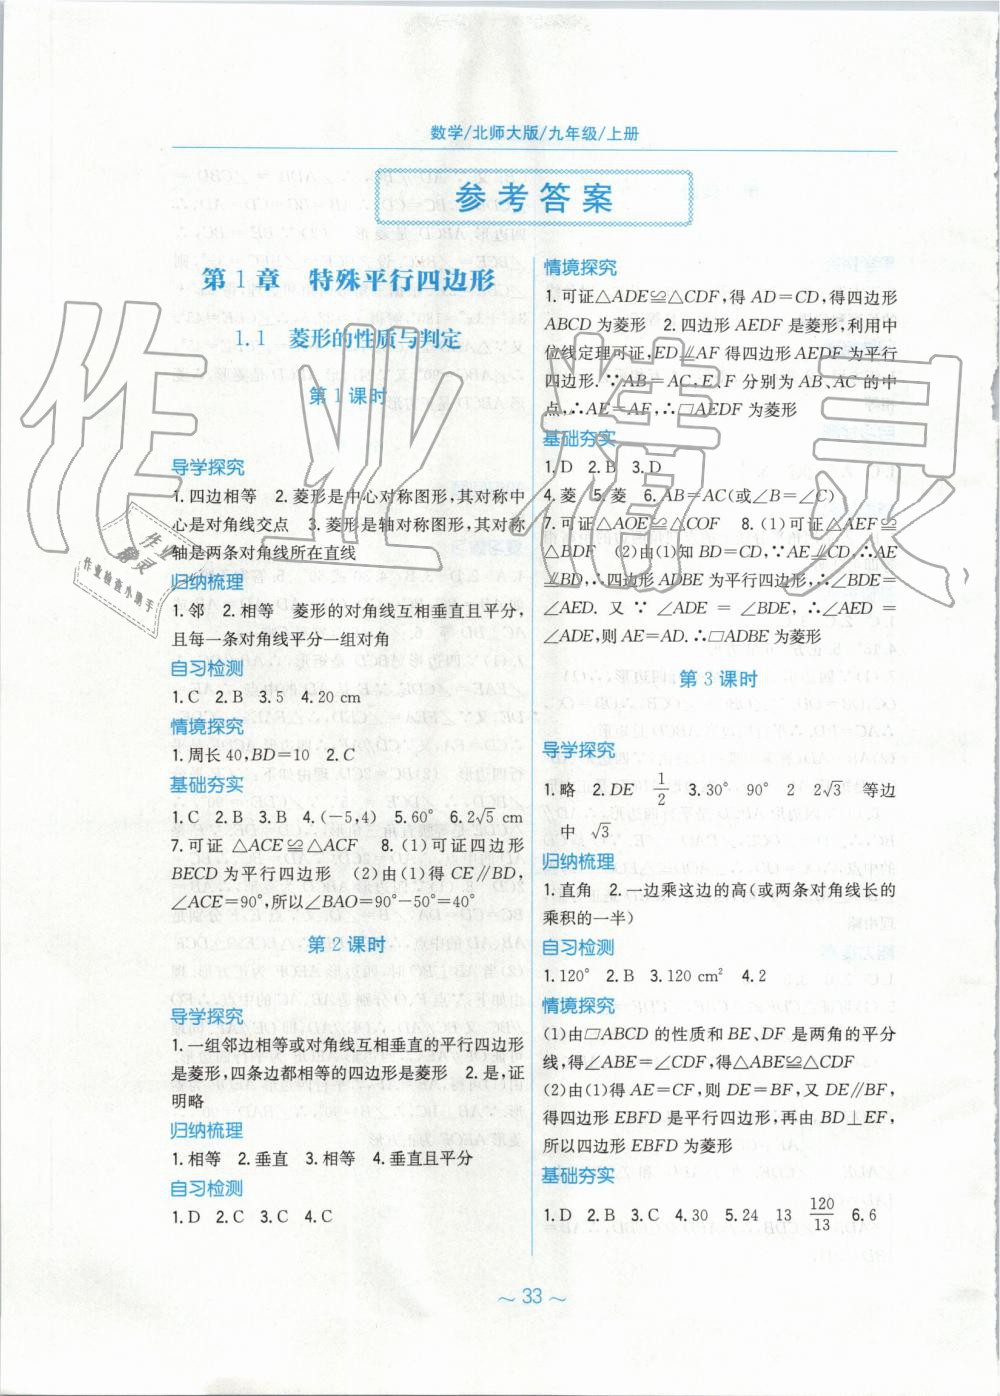 数学/北师大版/九年级/上册
参考答案
第1章 特殊平行四边形
1.1 菱形的性质与判定
第1课时
导学探究
1.四边相等 2.菱形是中心对称图形,其对称中
心是对角线交点 3.菱形是轴对称图形,其对称
轴是两条对角线所在直线
归纳梳理
1.邻 2.相等 菱形的对角线互相垂直且平分,
且每一条对角线平分一组对角
自习检测
1.C 2.B 3.5 4.20 cm
情境探究
1.周长40,BD=10 2.C
基础夯实
1.C 2.B 3.B 4.(-5,4) 5.60° 6.2√5 cm
7.可证 △ACE≌△ACF 8.(1)可证四边形
BECD为平行四边形 (2)由(1)得CE∥BD,
∠ACE=90°,所以∠BAO=90°-50°=40°
第2课时
导学探究
1.一组邻边相等或对角线互相垂直的平行四边形
是菱形,四条边都相等的四边形是菱形 2.是,证
明略
归纳梳理
1.相等 2.垂直 3.相等 4.垂直且平分
自习检测
1.D 2.C 3.C 4.C
情境探究
1.可证△ADE≌△CDF,得AD=CD,得四边形
ABCD为菱形 2.四边形AEDF是菱形,利用中
位线定理可证,ED∥AF得四边形AEDF为平行
四边形.∵AB=AC,E、F分别为AB、AC的中
点,∴AE=AF,∴□AEDF为菱形
基础夯实
1.D 2.B 3.D
4.菱 5.菱 6.AB=AC(或∠B=∠C)
7.可证△AOE≌△COF 8.(1)可证△AEF≌
△BDF (2)由(1)知BD=CD,∵AE∥CD,∴AE
∥BD,∴四边形ADBE为平行四边形,∴∠BDE=
∠AED. 又∵∠ADE=∠BDE,∴∠AED=
∠ADE,则AE=AD.∴□ADBE为菱形
第3课时
导学探究
1.略 2.DE 1/2 3.30° 90° 2 2√3 等边
中 √3
归纳梳理
1.直角 2.一边乘这边的高(或两条对角线长的
乘积的一半)
自习检测
1.120° 2.B 3.120 cm² 4.2
情境探究
(1)由□ABCD的性质和BE、DF是两角的平分
线,得∠ABE=∠CDF,得△ABE≌△CDF
(2)由(1)得AE=CF,则DE=BF,又DE∥BF,
得四边形EBFD是平行四边形,再由BD⊥EF,
所以四边形EBFD为菱形
基础夯实
1.D 2.B 3.C 4.30 5.24 13 120/13 6.6
~33~
作业精灵
作业精灵
作业检查小助手